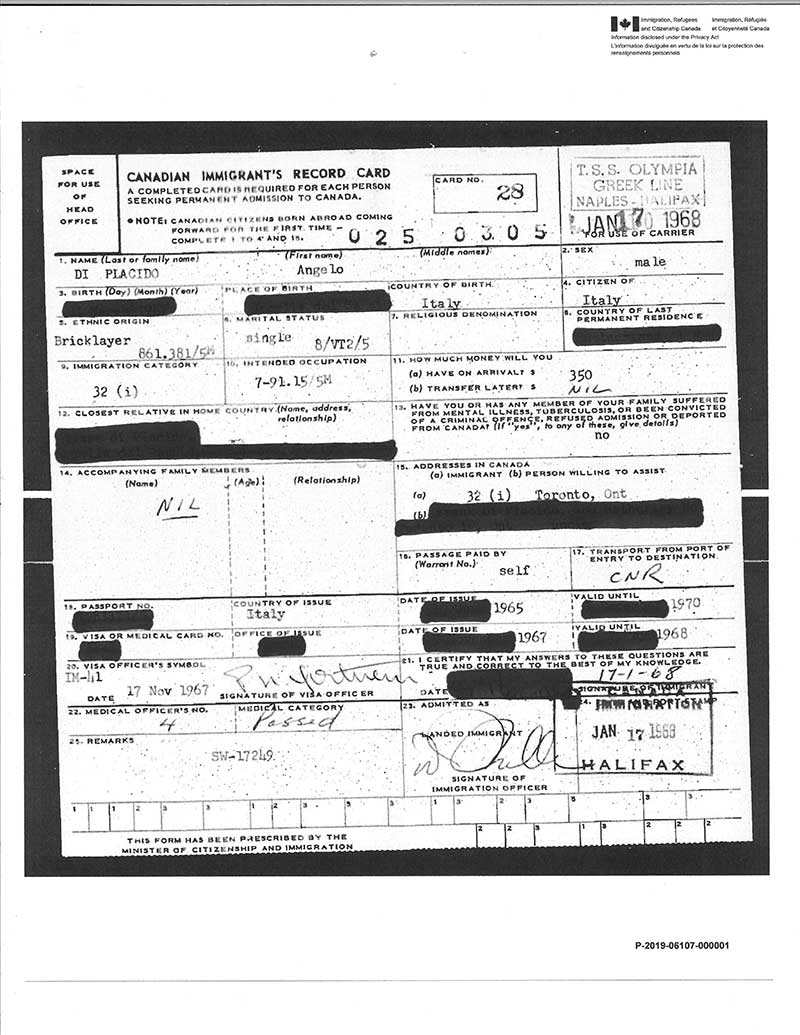 Immigration, Refugees and Citizenship Canada
Immigration, Réfugiés et Citoyenneté Canada
Information disclosed under the Privacy Act
L'information divulguée en vertu de la loi sur la protection des
renseignements personnels
SPACE FOR USE OF HEAD OFFICE
CANADIAN IMMIGRANT'S RECORD CARD
A COMPLETED CARD IS REQUIRED FOR EACH PERSON
SEEKING PERMANENT ADMISSION TO CANADA.
NOTE: CANADIAN CITIZENS BORN ABROAD COMING
FORWARD FOR THE FIRST TIME –
COMPLETE 1 TO 4 AND 15.
CARD NO. 28
T.S.S. OLYMPIA
GREEK LINE
NAPLES-HALIFAX
JAN 17 1968
FOR USE OF CARRIER
025 0305
1. NAME (Last or family name) (First name) (Middle names)
DI PLACIDO Angelo
2. SEX
male
3. BIRTH (Day) (Month) (Year)
PLACE OF BIRTH
COUNTRY OF BIRTH
Italy
4. CITIZEN OF
Italy
5. ETHNIC ORIGIN
Bricklayer
861.381/5M
6. MARITAL STATUS
single 8/VT2/5
7. RELIGIOUS DENOMINATION
8. COUNTRY OF LAST
PERMANENT RESIDENCE
9. IMMIGRATION CATEGORY
32 (i)
10. INTENDED OCCUPATION
7-91.15/5M
11. HOW MUCH MONEY WILL YOU
(a) HAVE ON ARRIVAL? $ 350
(b) TRANSFER LATER? $ NIL
12. CLOSEST RELATIVE IN HOME COUNTRY (Name, address,
relationship)
13. HAVE YOU OR HAS ANY MEMBER OF YOUR FAMILY SUFFERED
FROM MENTAL ILLNESS, TUBERCULOSIS, OR BEEN CONVICTED
OF A CRIMINAL OFFENCE, REFUSED ADMISSION OR DEPORTED
FROM CANADA? (If "yes", to any of these, give details)
no
14. ACCOMPANYING FAMILY MEMBERS
(Name) (Age) (Relationship)
NIL
15. ADDRESSES IN CANADA
(a) IMMIGRANT (b) PERSON WILLING TO ASSIST
(a) 32 (i) Toronto, Ont
(b)
16. PASSAGE PAID BY
(Warrant No.)
self
17. TRANSPORT FROM PORT OF
ENTRY TO DESTINATION
CNR
18. PASSPORT NO.
COUNTRY OF ISSUE
Italy
DATE OF ISSUE
1965
VALID UNTIL
1970
19. VISA OR MEDICAL CARD NO.
OFFICE OF ISSUE
DATE OF ISSUE
1967
VALID UNTIL
1968
20. VISA OFFICER'S SYMBOL
IM-41
DATE 17 Nov 1967
SIGNATURE OF VISA OFFICER
21. I CERTIFY THAT MY ANSWERS TO THESE QUESTIONS ARE
TRUE AND CORRECT TO THE BEST OF MY KNOWLEDGE.
17-1-68
DATE
SIGNATURE OF IMMIGRANT
22. MEDICAL OFFICER'S NO.
4
MEDICAL CATEGORY
Passed
23. ADMITTED AS
LANDED IMMIGRANT
SIGNATURE OF
IMMIGRATION OFFICER
24.
CANADA
IMMIGRATION
JAN 17 1968
HALIFAX
25. REMARKS
SW-17249
1 1 1 2 3 3 1 2 3 5 5 1 3 2 3 5 3 3
2 2 5 1 5 2 2 2
THIS FORM HAS BEEN PRESCRIBED BY THE
MINISTER OF CITIZENSHIP AND IMMIGRATION
P-2019-06107-000001